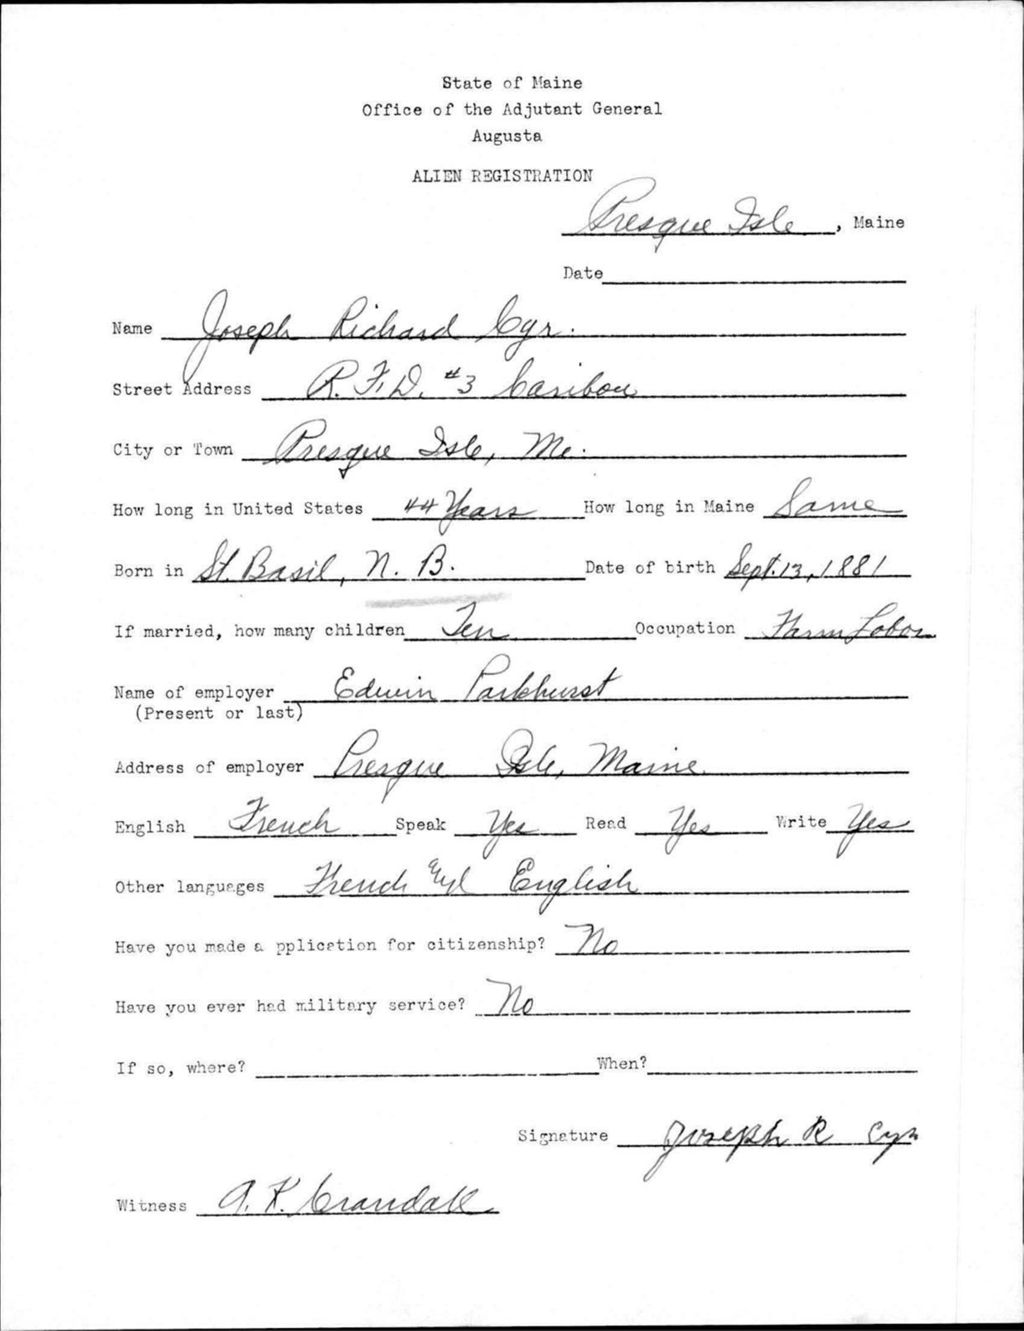 State of Maine
Office of the Adjutant General
Augusta
ALIEN REGISTRATION
Presque Isle, Maine
Date
Name Joseph Richard Cyr.
Street Address R. F. D. #3 Caribou
City or Town Presque Isle, Me.
How long in United States 44 Years How long in Maine Same
Born in St. Basil, N. B. Date of birth Sept. 13, 1881
If married, how many children Ten Occupation Farm Labor
Name of employer Edwin Parkhurst
(Present or last)
Address of employer Presque Isle, Maine
English French Speak Yes Read Yes Write Yes
Other languages French English
Have you made a pplication for citizenship? No
Have you ever had military service? No
If so, where? When?
Signature Joseph R Cyr
Witness A. K. Crandall